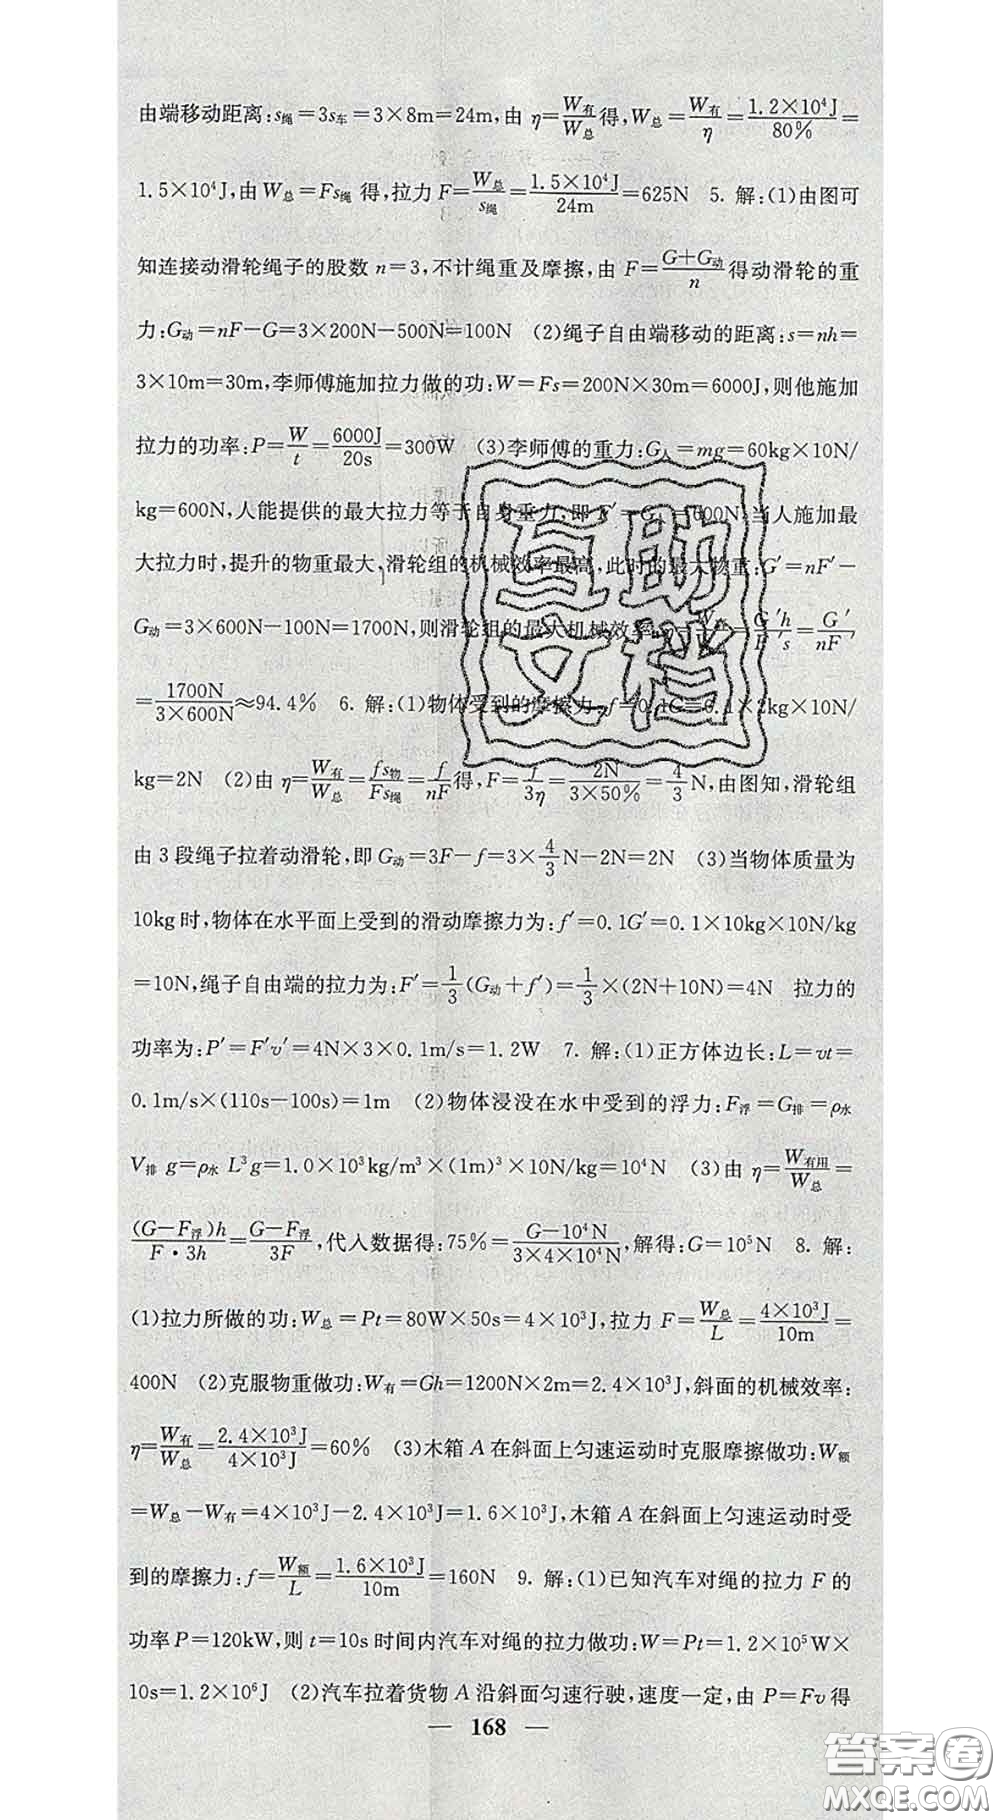 由端移动距离:s绳=3s车=3×8m=24m,由 η=W有/W总 得,W总=W有/η=1.2×10⁴J/80%=
1.5×10⁴J,由 W总=Fs绳 得,拉力 F=W总/s绳=1.5×10⁴J/24m=625N 5. 解:(1)由图可
知连接动滑轮绳子的股数 n=3,不计绳重及摩擦,由 F=(G+G动)/n 得动滑轮的重
力:G动=nF-G=3×200N-500N=100N (2)绳子自由端移动的距离:s=nh=
3×10m=30m,李师傅施加拉力做的功:W=Fs=200N×30m=6000J,则他施加
拉力的功率:P=W/t=6000J/20s=300W (3)李师傅的重力:G人=mg=60kg×10N/
kg=600N,人能提供的最大拉力等于自身重力,即 F′=G人=600N,当人施加最
大拉力时,提升的物重最大,滑轮组的机械效率最高,此时的最大物重:G′=nF′-
G动=3×600N-100N=1700N,则滑轮组的最大机械效率 G′h/F′s=G′/nF′
=1700N/(3×600N)≈94.4% 6. 解:(1)物体受到的摩擦力:f=0.1G=0.1×2kg×10N/
kg=2N (2)由 η=W有/W总=fs物/Fs绳=f/nF 得,F=f/3η=2N/(3×50%)=4/3 N,由图知,滑轮组
由 3 段绳子拉着动滑轮,即 G动=3F-f=3×4/3 N-2N=2N (3)当物体质量为
10kg 时,物体在水平面上受到的滑动摩擦力为:f′=0.1G′=0.1×10kg×10N/kg
=10N,绳子自由端的拉力为:F′=1/3(G动+f′)=1/3×(2N+10N)=4N 拉力的
功率为:P′=F′v′=4N×3×0.1m/s=1.2W 7. 解:(1)正方体边长:L=vt=
0.1m/s×(110s-100s)=1m (2)物体浸没在水中受到的浮力:F浮=G排=ρ水
V排 g=ρ水 L³g=1.0×10³kg/m³×(1m)³×10N/kg=10⁴N (3)由 η=W有用/W总=
(G-F浮)h/(F·3h)=(G-F浮)/3F,代入数据得:75%=(G-10⁴N)/(3×4×10⁴N),解得:G=10⁵N 8. 解:
(1)拉力所做的功:W总=Pt=80W×50s=4×10³J,拉力 F=W总/L=4×10³J/10m=
400N (2)克服物重做功:W有=Gh=1200N×2m=2.4×10³J,斜面的机械效率:
η=W有/W总=2.4×10³J/4×10³J=60% (3)木箱 A 在斜面上匀速运动时克服摩擦做功:W额
=W总-W有=4×10³J-2.4×10³J=1.6×10³J,木箱 A 在斜面上匀速运动时受
到的摩擦力:f=W额/L=1.6×10³J/10m=160N 9. 解:(1)已知汽车对绳的拉力 F 的
功率 P=120kW,则 t=10s 时间内汽车对绳的拉力做功:W=Pt=1.2×10⁵W×
10s=1.2×10⁶J (2)汽车拉着货物 A 沿斜面匀速行驶,速度一定,由 P=Fv 得
— 168 —
互助
文档
答案圈
MXQE.COM